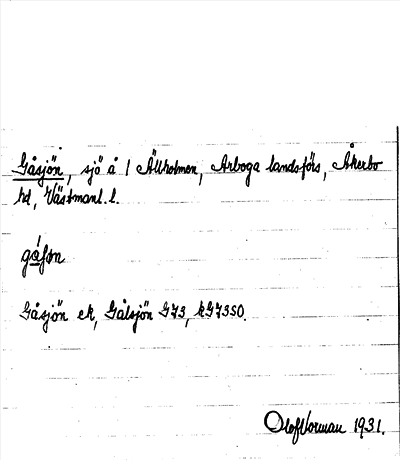 Gåsjön, sjö å 1 Älkholmen, Arboga landsförs, Åkerbo
hd, Västmanl. l.
gåsøn
Gåsjön ek, Gålsjön G73, kG73SO.
Olof Norman 1931.